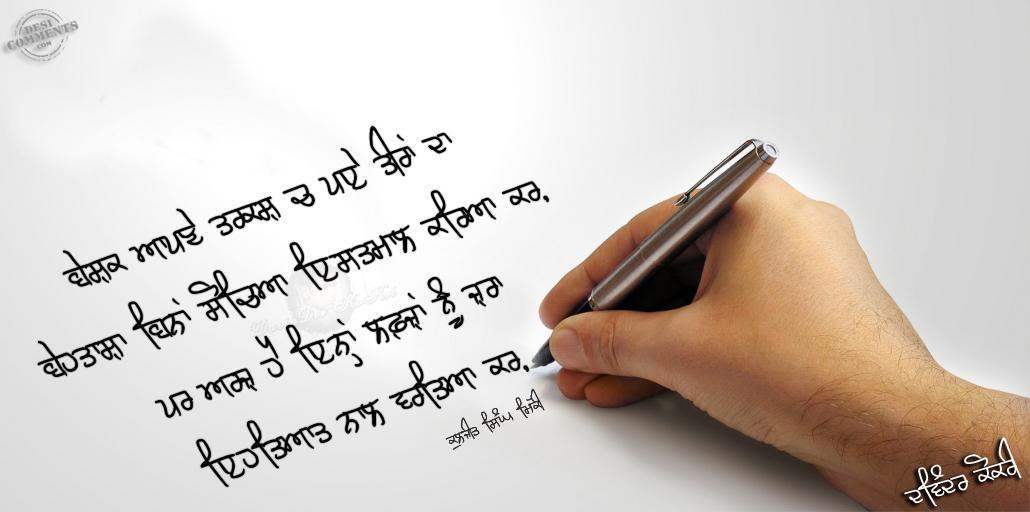 DESI COMMENTS .COM
ਬੇਸ਼ਕ ਆਪਣੇ ਤਰਕਸ਼ ਚ ਪਏ ਤੀਰਾਂ ਦਾ
ਬੇਹਤਾਸ਼ਾ ਬਿਨਾਂ ਸੋਚਿਆ ਇਸਤਮਾਲ ਕਰਿਆ ਕਰ,
ਪਰ ਅਰਜ਼ ਹੈ ਇਨ੍ਹਾਂ ਲਫ਼ਜ਼ਾਂ ਨੂੰ ਜ਼ਰਾ
ਇਹਤਿਆਤ ਨਾਲ ਵਰਤਿਆ ਕਰ,
ਕੁਲਜੀਤ ਸਿੰਘ
ਦਵਿੰਦਰ ਕੋਕਰੀ